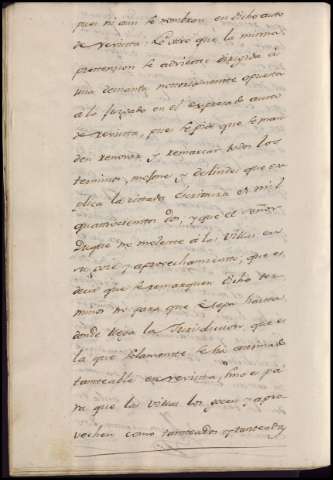 pues ni aun se nombran en dicho auto
de revista: Lo otro que la misma
pretension se advierte dirigida á
una demanda notoriamente opuesta
á lo juzgado en el expresado auto
de revista, pues se pide que se man
den renovar y remarcar todos los
terminos, mojones y deslindes que ex
plica la citada Escritura de mil
quatrocientos dos, y que el Señor
Duque no moleste á las Villas en
su goce y aprovechamiento, que es
decir que se remarquen dicho ter
minos no para que se sepa hasta
donde llega la Jurisdiccion, que es
la que solamente se ha estimado
tanteable en revista, sino es pa
ra que las Villas los gocen y apro
vechen como tanteados y tanteadas